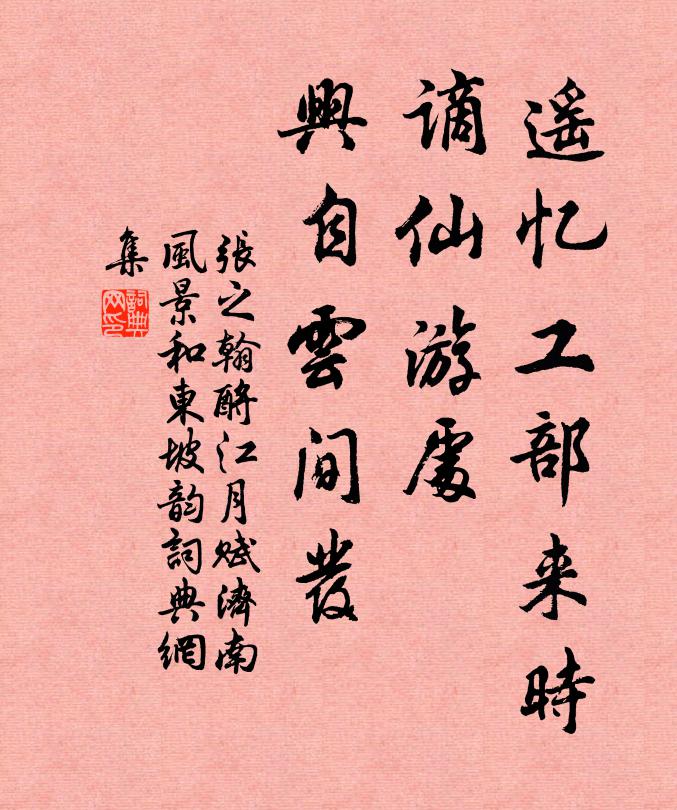 遥忆工部来时
谪仙游處
興自雲间發
張之翰酹江月赋濟南
風景和東坡韵詞典網
集
詞典
网印